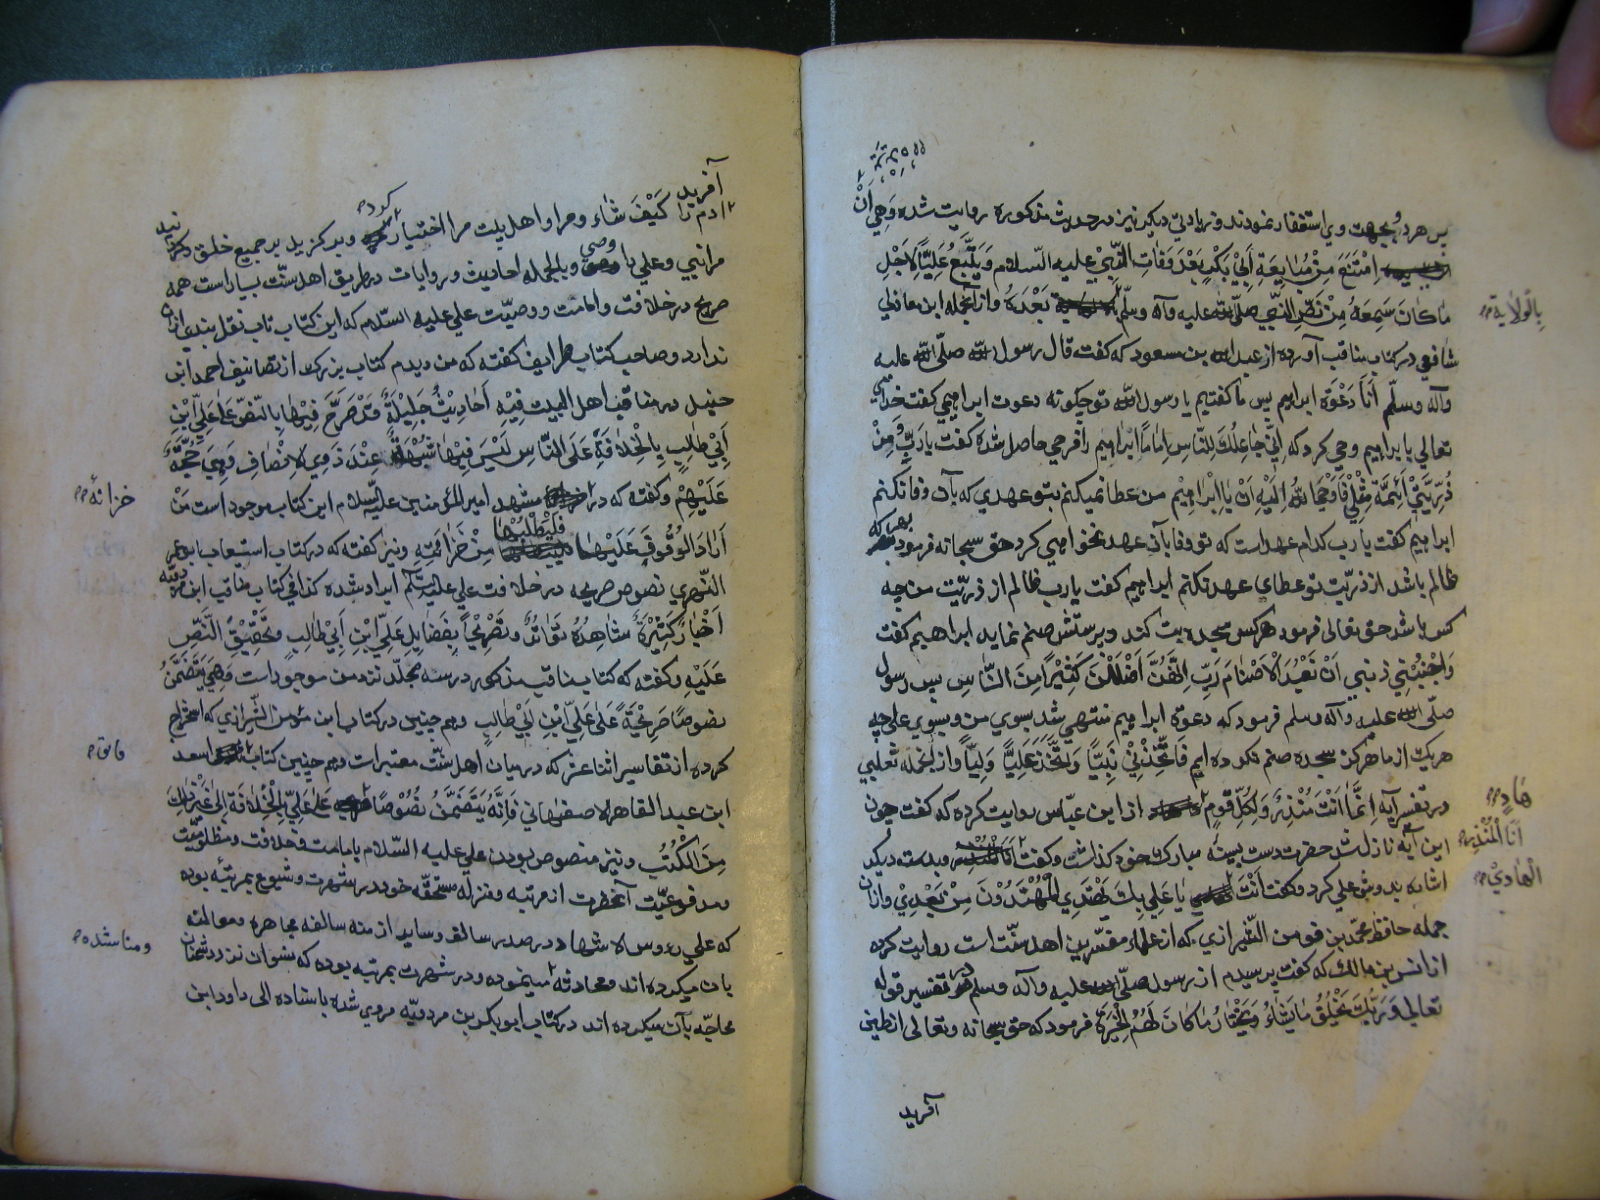 بر هر دو بجهت وی استغفار نمودند و زیادتی دیگر نیز در حدیث مذکوره روایت شده و هی ان
امتنع من مبایعة ابی بکر بعد وفات النبی علیه السلام و یتبع علیا لاجل
ما کان سمعه من نص النبی صلی الله علیه و آله وسلم بعده و از آنجمله ابن مغازلی
بالولایة
شافعی در کتاب مناقب آورده از عبد الله بن مسعود که کفت قال رسول الله صلی الله علیه
وآله وسلم أنا دعوة ابراهیم پس ما کفتیم یا رسول الله تو چکونه دعوت ابراهیمی کفت خدای
تعالی بابراهیم وحی کرد که انی جاعلک للناس اماما ابراهیم را فرحی حاصل شده کفت یا رب و من
ذریتی ائمة مثلی فاوحی الله الیه ان یا ابراهیم من عطا نمیکنم بتو عهدی که بآن وفا نکنم
ابراهیم کفت یا رب کدام عهد است که تو وفا بآن عهد نخواهی کرد حق سبحانه فرمود که هر که
ظالم باشد از ذریت تو عطای عهد نکنم ابراهیم کفت یا رب ظالم از ذریت من چه
کس باشد حق تعالی فرمود هر کس سجده بت کند و پرستش صنم نماید ابراهیم کفت
واجنبنی و بنی ان نعبد الاصنام رب انهن اضللن کثیرا من الناس پس رسول
صلی الله علیه وآله وسلم فرمود که دعوة ابراهیم منتهی شد بسوی من و بسوی علی چه
هریک از ما هرکز سجده صنم نکرده ایم فاتخذنی نبیا واتخذ علیا ولیا و از آنجمله ثعلبی
در تفسیر آیه انما انت منذر ولکل قوم از ابن عباس روایت کرده که کفت چون
هاد
این آیه نازل شد حضرت دست بسینه مبارک خود کذاشت و کفت و بدست دیکر
انا المنذر
اشاره بدوش علی کرد و کفت انت یا علی بک یهتدی المهتدون من بعدی و از آن
الهادی
جمله حافظ محمد بن مؤمن الشیرازی که از علماء مفسرین اهل سنت است روایت کرده
از انس بن مالک که کفت پرسیدم از رسول صلی الله علیه وآله وسلم در تفسیر قوله
تعالی وربک یخلق ما یشاء ویختار ما کان لهم الخیرة فرمود که حق سبحانه وتعالی از طین
آفرید
آفرید
آدم را کیف شاء و مرا و اهل بیت مرا اختیار کرد و برکزید بر جمیع خلق
مرا نبی و علی را وصی و بالجمله احادیث و روایات در طریق اهل سنت بسیار است همه
صریح در خلافت و امامت و وصیت علی علیه السلام که این کتاب تاب نقل بعضی از آن
ندارد و صاحب کتاب طرایف کفته که من دیدم کتاب بزرک از تصانیف احمد ابن
حنبل در مناقب اهل البیت فیه احادیث جلیلة قد صرح فیها بالنص علی علی ابن
ابی طالب بالخلافة علی الناس لیس فیها شبهة عند ذوی الانصاف و هی حجة
علیهم و کفته که در مشهد امیر المؤمنین علیه السلام این کتاب موجود است من
خزانه
اراد الوقوف علیها فلیطلبها من خزانته و نیز کفته که در کتاب استیعاب
النمری نصوص صریحه در خلافت علی علیه السلام ایراد شده کذا فی کتاب مناقب ابن مردویه
اخبار کثیرة شاهده تواتر و تصریحا بفضایل علی ابن ابی طالب و تحقیق النص
علیه و کفته که کتاب مناقب مذکور در سه مجلد نزد من موجود است و هی یتضمن
نصوصا صریحة علی علی ابن ابی طالب و همچنین در کتاب ابن مؤمن الشیرازی که استخراج
کرده از تفاسیر اثنا عشر که در میان اهل سنت معتبر است و همچنین کتاب اسعد
فایق
ابن عبد القاهر الاصفهانی فانه یتضمن نصوصا علی علی بالخلافة الی غیر ذلک
من الکتب و نیز منصوص بودن علی علیه السلام بامامت و خلافت و مظلومیت
و مدفوعیت آنحضرت از مرتبه و منزله مستحقه خود در شهرت و شیوع بمرتبه بوده
که علی رءوس الاشهاد در صدر سالف و سایر ازمنه سالفه مجاهره و معالنه
بآن میکرده اند و محادثه مینموده و در شهرت بمرتبه بوده که نسوان نزد دشمنان
و مناشده
محاجه بآن میکرده اند در کتاب ابوبکر بن مردویه مروی شده باسناده الی داود ابن